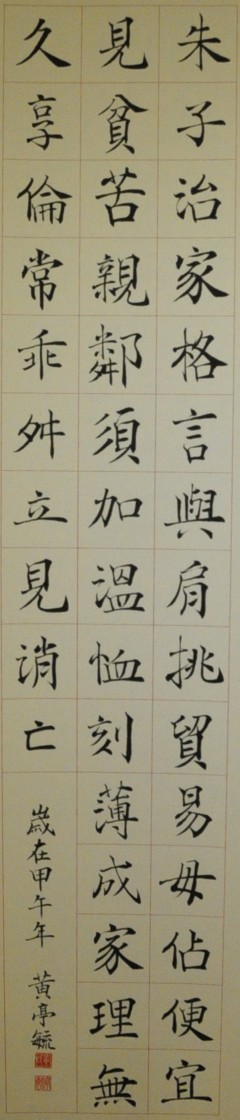 朱子治家格言與肩挑貿易毋佔便宜
見貧苦親鄰須加溫恤刻薄成家理無
久享倫常乖舛立見消亡
歲在甲午年 黃亭毓